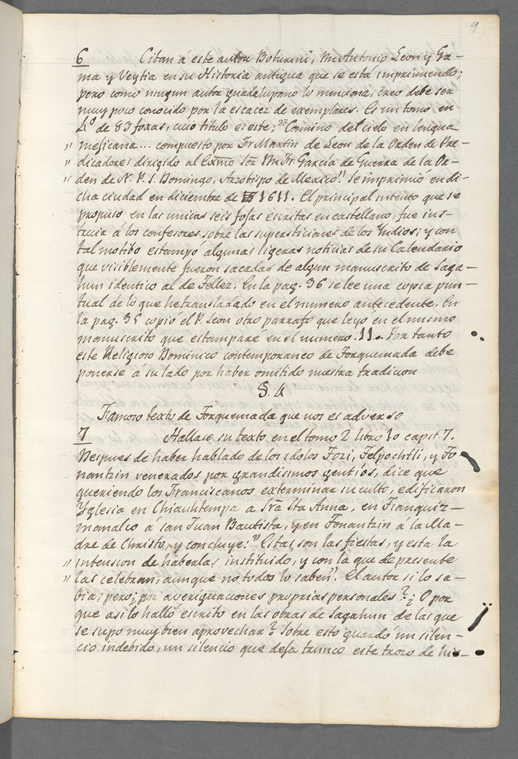 9
6 Citan á este autor Boturini, Dn Antonio Leon y Ga-
ma y Veytia en su Historia antigua que se está imprimiendo;
pero como ningun autor guadalupano lo menciona, creo debe ser
muy poco conocido por la escacez de exemplares. Es un tomo en
4.º de 83 foxas, cuio titulo es este: "Camino del Cielo en lengua
" mejicana... compuesto por Fr Martin de Leon de la Orden de Pre-
" dicadores dirigido al Exmo Sor Mtro Fr Garcia de Guerra de la Or-
" den de N. P. S. Domingo, Arzobispo de Mexico". Se imprimió en di-
cha ciudad en diciembre de 1611. El principal intento que se
propuso en las unicas seis fojas escritas en castellano, fue ins-
truir á los confesores sobre las supersticiones de los Indios; y con
tal motibo estampó algunas ligeras noticias de su Calendario
que visiblemente fueron sacadas de algun manuscrito de Saga-
hun identico al de Tellez. En la pag. 96 se lee una copia pun-
tual de lo que he trasladado en el numero antecedente. En
la pag. 95 copió el P. Leon otro parrafo que leyó en el mismo
manuscrito que estamparé en el numero 11. Por tanto
este Religioso Dominico contemporaneo de Torquemada debe
ponerse á su lado por haber omitido nuestra tradicion
§. 4
Famoso texto de Torquemada que nos es adverso
7 Hallase su texto en el tomo 2 libro 10 capit 7.
Despues de haber hablado de los idolos Tozi, Telpochtli, y To-
nantzin venerados por grandisimos gentios, dice que
queriendo los Franciscanos exterminar su culto, edificaron
Yglesia en Chiauhtempa á Sra Sta Anna, en Tianquiz-
manalco á San Juan Bautista, y en Tonantzin á la Ma-
dre de Christo, y concluye: "Estas son las fiestas, y esta la
" intension de haberlas instituido, y con la que de presente
" las celebran, aunque no todos lo saben". El autor si lo sa-
bia; pero ¿por averiguaciones proprias personales? ¿O por
que asi lo halló escrito en las obras de Sagahun de las que
se supo muy bien aprovechar? Sobre esto guardó un silen-
cio indebido, un silencio que deja trunco este trozo de his-